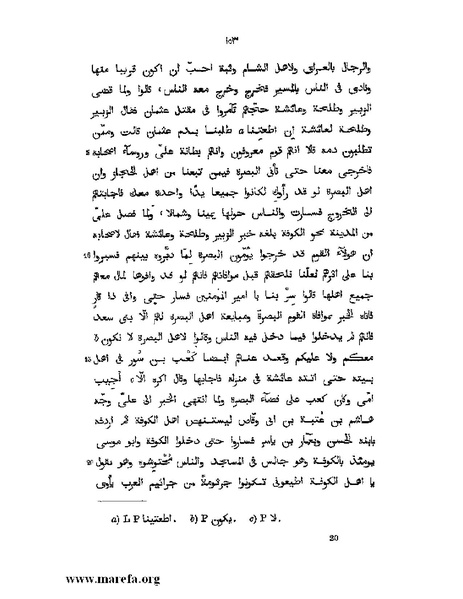 ١٥٣
والرجال بالعراق ولاهل الشـام وثبة احسبّ ان اكون قريبا منها
ونادى فى الناس بالمسير فخرج وخرج معه الناس، قالوا ولما قضى
الزبير وطلحة وعائشة حجّتهم تآمروا فى مقتل عثمان فقال الزبير
وطلحة لعائشة إن اطعتِنا a طلبنا بـدم عثمان قالت وممّن
تطلبون دمه قالا انهم قوم معروفون وانهم بطانة علىّ وروسآء اصحابه
فاخرجى معنا حتى نأتى البصرة فيمن تبعنا من اهل الحجاز وان
اهل البصرة لو قد رأوك لكانوا جميعا يدًا واحدة معك فاجابتهم
الى الخروج فسارت والناس حولها يمينا وشمالا، ولما فصل علىّ
من المدينة نحو الكوفة بلغه خبر الزبير وطلحة وعائشة فقال لاصحابه
ان هؤلآء القوم قد خرجوا يؤمّون البصرة لِما دبّروه بينهم فسيروا
بنا على اثرهم لعلّنا نلحقهم قبل موافاتهم فانهم لو قد وافوها لمال معهم
جميع اهلها قالوا سِرْ بنا يا امير المومنين فسار حتى وافى ذا قار
فاتاه الخبر بموافاة القوم البصرةَ ومبايعة اهل البصرة لهم الّا بنى سعد
فانهم لم يدخلوا فيما دخل فيه الناس وقالوا لاهل البصرة لا نكون b
معكم ولا عليكم وقعد عنهم ايضا كَعْب بـن سُور فى اهل
بيته حتى اتته عائشة فى منزله فاجابها وقال اكره الّا c أُجيب
امى وكان كعب على قضآء البصرة ولما انتهى الخبر الى علىّ وجّه
هـاشم بن عُتبة بن ابى وقّاص ليستنهض اهل الكوفة ثم اردفه
بابنه الحسن وبعمّار بن ياسر فساروا حتى دخلوا الكوفة وابو موسى
يومئذ بالكوفة وهو جالس فى المسجد والناس مُحْتَوِشوه وهو يقول
يا اهـل الكوفـة اطيعونى تـكونوا جرثومةً من جراثيم العرب يأوى
a) L P اطعتينا. b) P يكون. c) P لا.
20
www.marefa.org